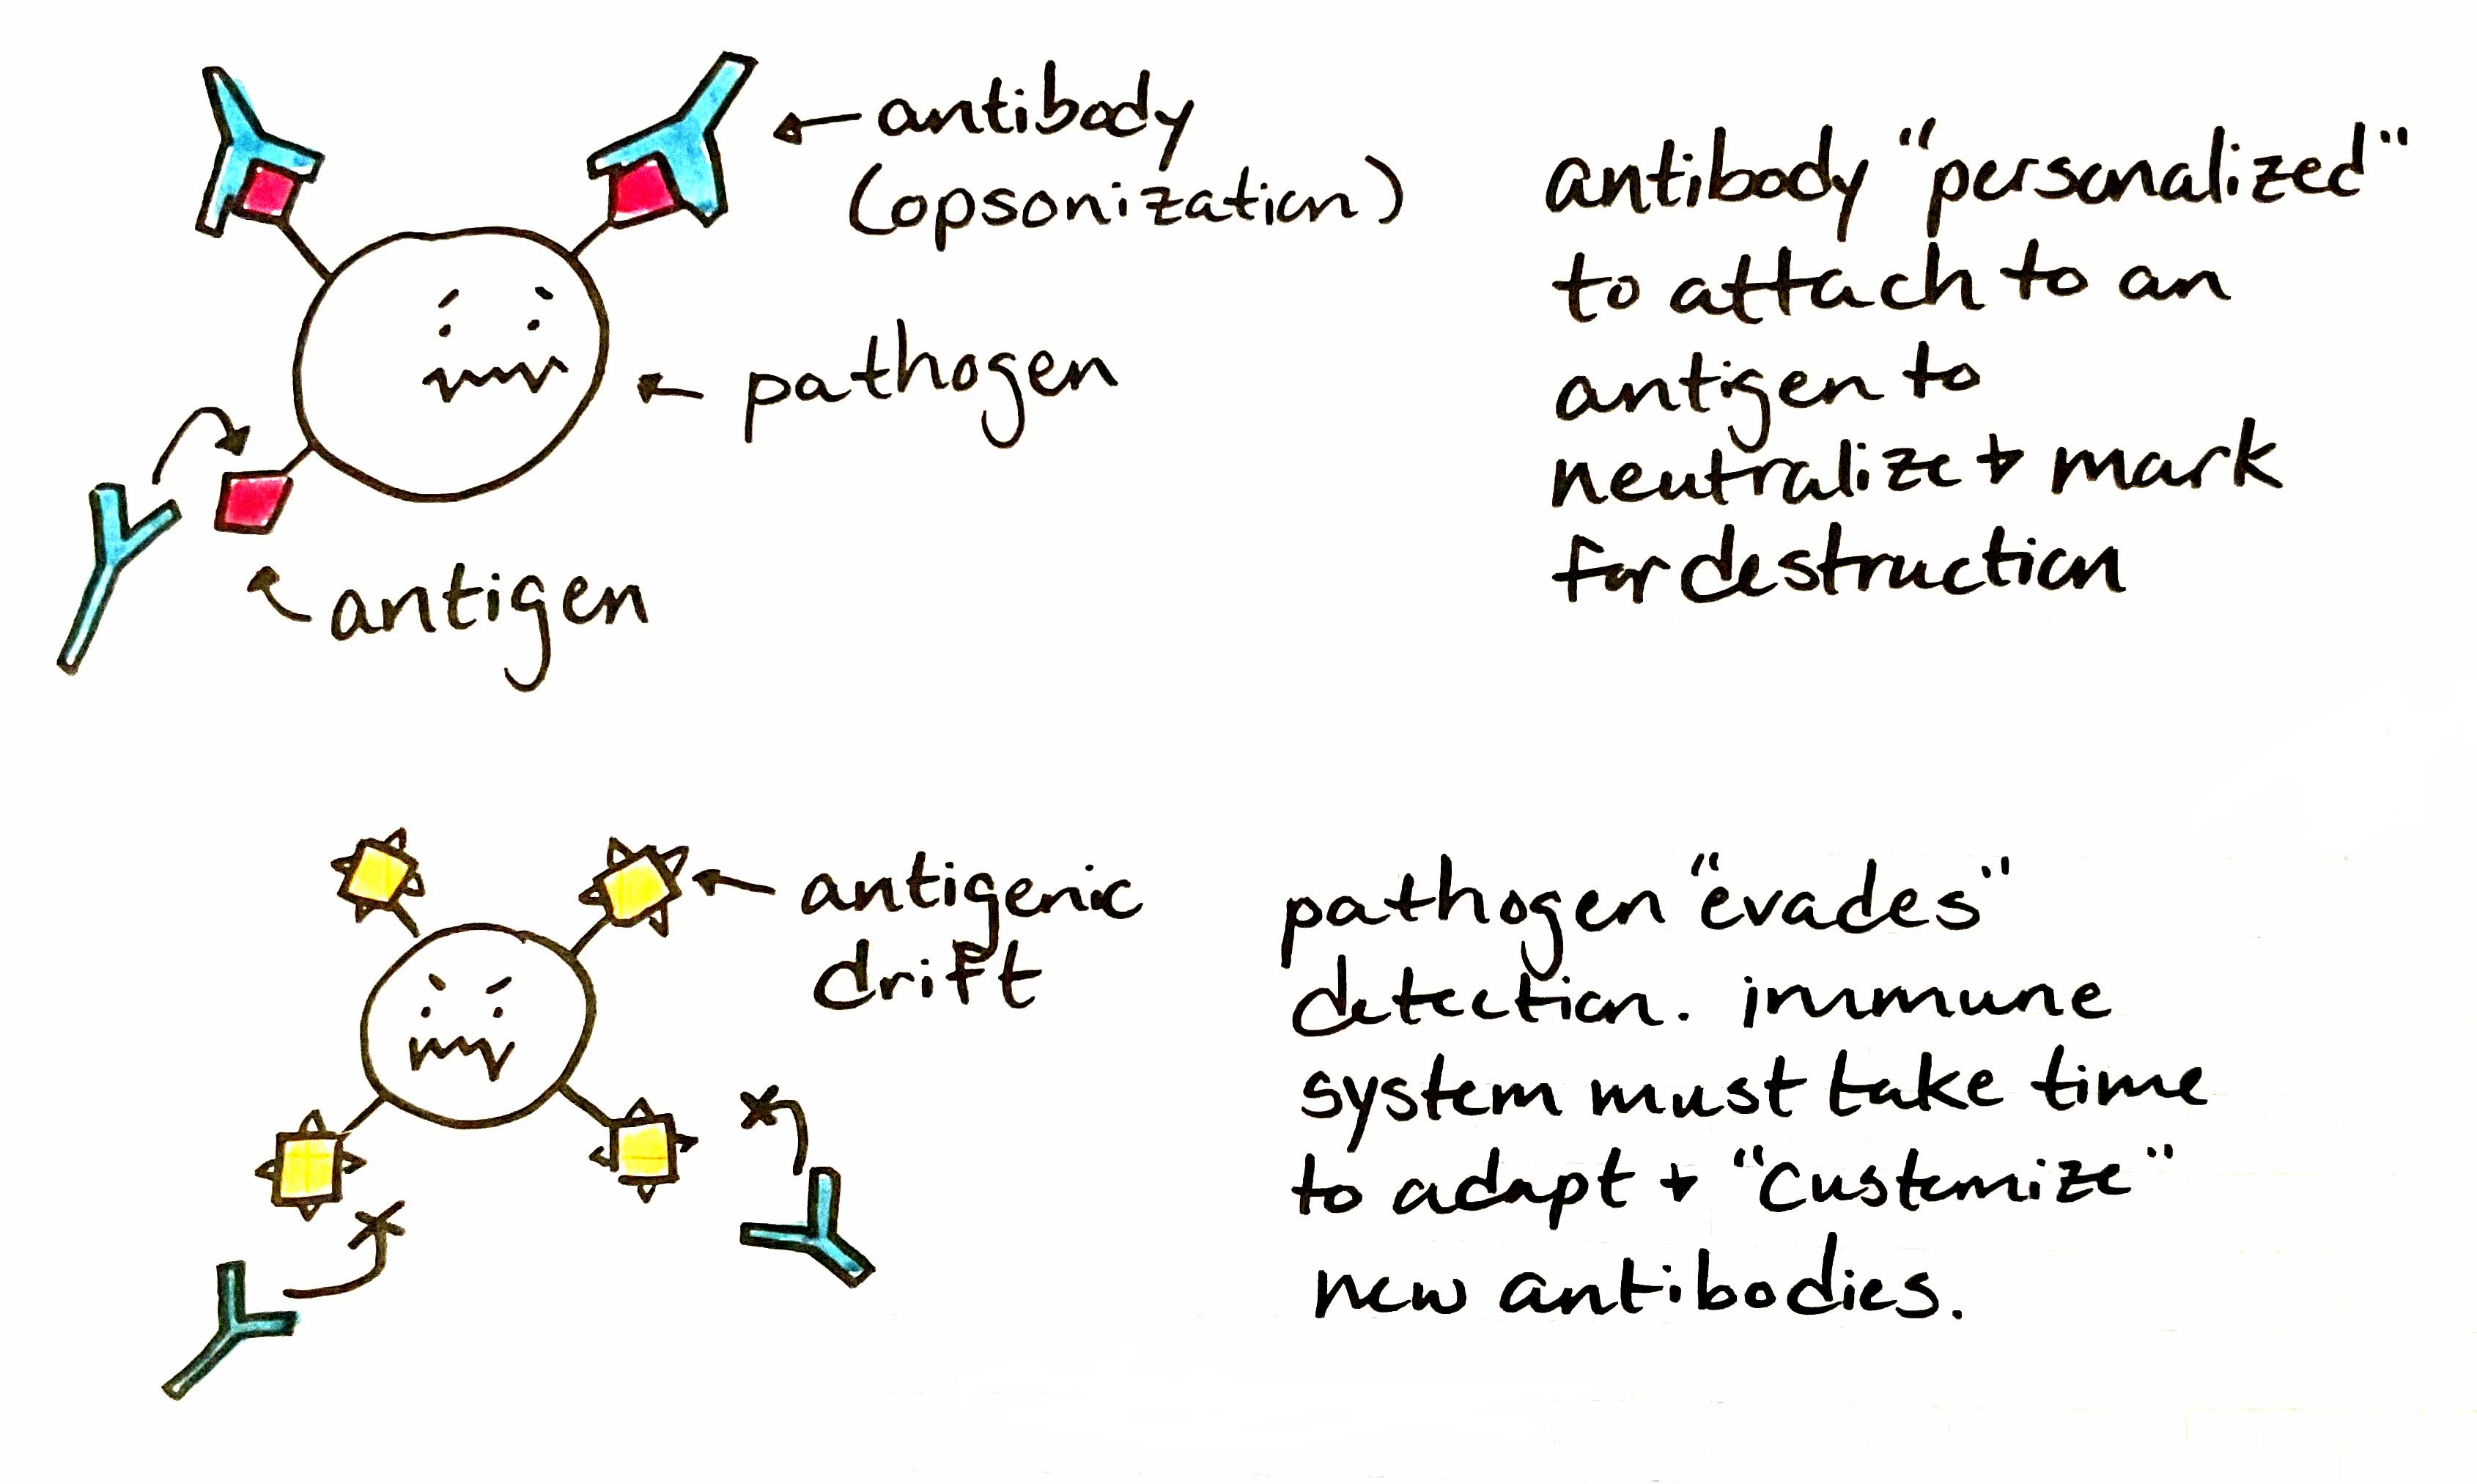 antibody
(opsonization)
pathogen
antigen
antibody "personalized"
to attach to an
antigen to
neutralize + mark
for destruction
antigenic
drift
pathogen "evades"
detection. immune
system must take time
to adapt + "customize"
new antibodies.